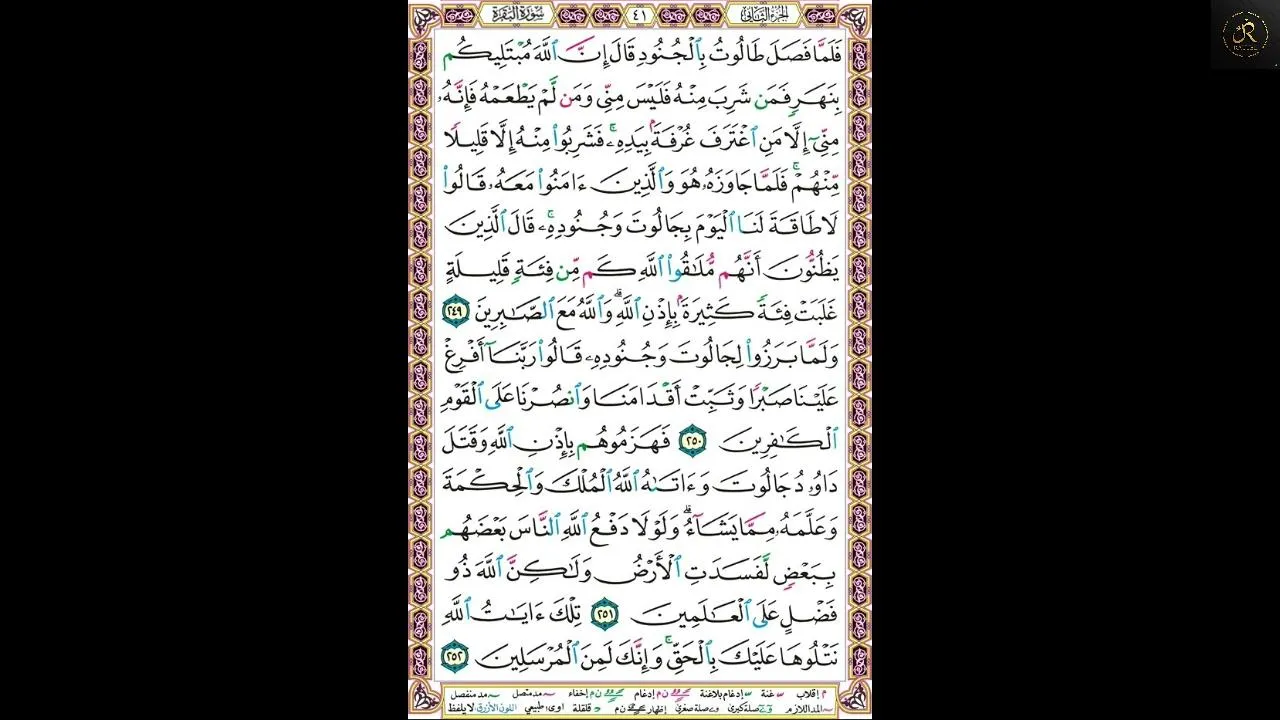 الجزء الثاني ٤١ سورة البقرة
فَلَمَّا فَصَلَ طَالُوتُ بِٱلْجُنُودِ قَالَ إِنَّ ٱللَّهَ مُبْتَلِيكُم
بِنَهَرٍ فَمَن شَرِبَ مِنْهُ فَلَيْسَ مِنِّي وَمَن لَّمْ يَطْعَمْهُ فَإِنَّهُۥ
مِنِّيٓ إِلَّا مَنِ ٱغْتَرَفَ غُرْفَةَۢ بِيَدِهِۦۚ فَشَرِبُوا۟ مِنْهُ إِلَّا قَلِيلًا
مِّنْهُمْۚ فَلَمَّا جَاوَزَهُۥ هُوَ وَٱلَّذِينَ ءَامَنُوا۟ مَعَهُۥ قَالُوا۟
لَا طَاقَةَ لَنَا ٱلْيَوْمَ بِجَالُوتَ وَجُنُودِهِۦۚ قَالَ ٱلَّذِينَ
يَظُنُّونَ أَنَّهُم مُّلَٰقُوا۟ ٱللَّهِ كَم مِّن فِئَةٍ قَلِيلَةٍ
غَلَبَتْ فِئَةً كَثِيرَةَۢ بِإِذْنِ ٱللَّهِۗ وَٱللَّهُ مَعَ ٱلصَّٰبِرِينَ ٢٤٩
وَلَمَّا بَرَزُوا۟ لِجَالُوتَ وَجُنُودِهِۦ قَالُوا۟ رَبَّنَآ أَفْرِغْ
عَلَيْنَا صَبْرًا وَثَبِّتْ أَقْدَامَنَا وَٱنصُرْنَا عَلَى ٱلْقَوْمِ
ٱلْكَٰفِرِينَ ٢٥٠ فَهَزَمُوهُم بِإِذْنِ ٱللَّهِ وَقَتَلَ
دَاوُۥدُ جَالُوتَ وَءَاتَىٰهُ ٱللَّهُ ٱلْمُلْكَ وَٱلْحِكْمَةَ
وَعَلَّمَهُۥ مِمَّا يَشَآءُۗ وَلَوْلَا دَفْعُ ٱللَّهِ ٱلنَّاسَ بَعْضَهُم
بِبَعْضٍ لَّفَسَدَتِ ٱلْأَرْضُ وَلَٰكِنَّ ٱللَّهَ ذُو
فَضْلٍ عَلَى ٱلْعَٰلَمِينَ ٢٥١ تِلْكَ ءَايَٰتُ ٱللَّهِ
نَتْلُوهَا عَلَيْكَ بِٱلْحَقِّۚ وَإِنَّكَ لَمِنَ ٱلْمُرْسَلِينَ ٢٥٢
م إقلاب غنة إدغام بلاغنة ن م إدغام ن م إخفاء مد متصل مد منفصل
المد اللازم صلة كبرى صلة صغرى إظهار ن م قلقلة اوى: طبيعي اللون الأزرق لا يلفظ